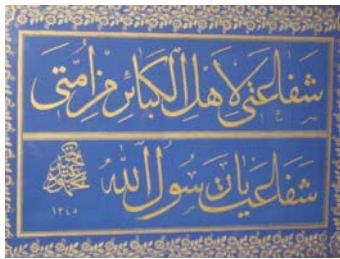 شفاعتى لاهل الكبائر من امتى
شفاعت يا رسول الله
١٢٤٥